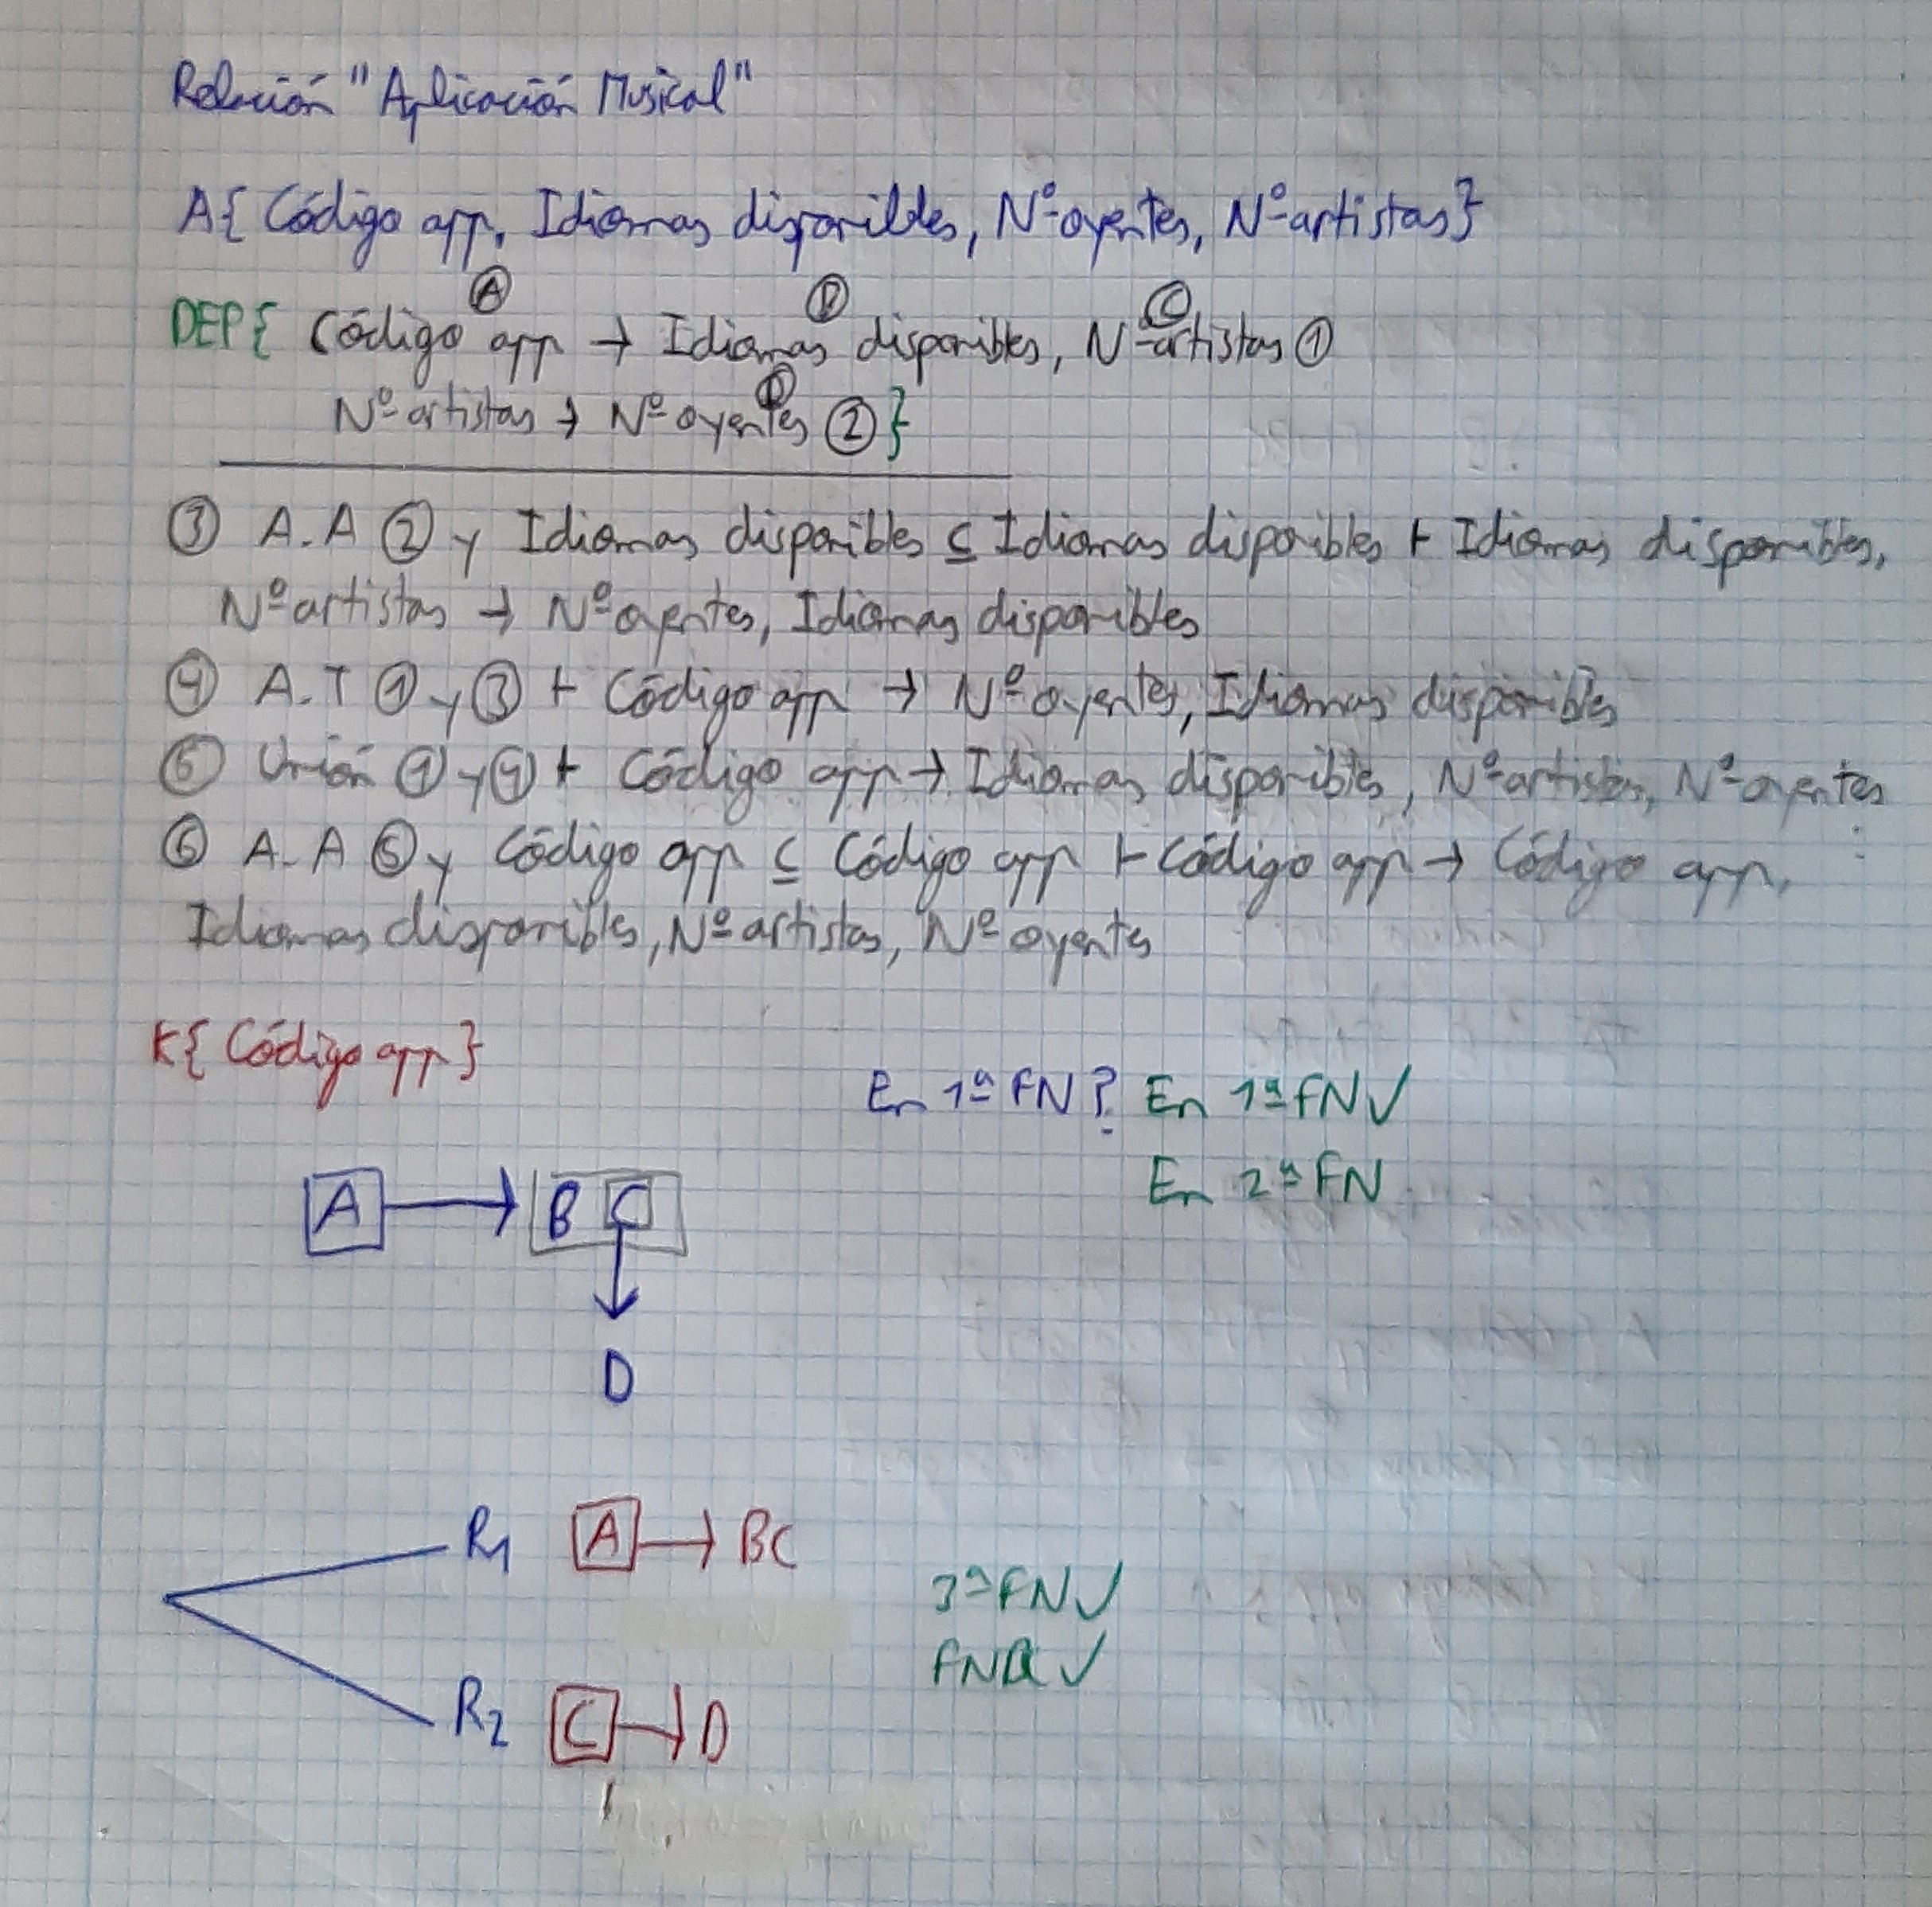 Relación "Aplicación Musical"
A{ Código app, Idiomas disponibles, Nº oyentes, Nº artistas}
A B C
DEP{ Código app → Idiomas disponibles, Nº artistas ①
D
Nº artistas → Nº oyentes ② }
③ A.A ② y Idiomas disponibles ⊆ Idiomas disponibles ⊢ Idiomas disponibles,
Nº artistas → Nº oyentes, Idiomas disponibles
④ A.T ① y ③ ⊢ Código app → Nº oyentes, Idiomas disponibles
⑤ Unión ① y ④ ⊢ Código app → Idiomas disponibles, Nº artistas, Nº oyentes
⑥ A.A ⑤ y Código app ⊆ Código app ⊢ Código app → Código app,
Idiomas disponibles, Nº artistas, Nº oyentes
K{ Código app }
En 1ª FN? En 1ª FN ✓
En 2ª FN
A → B C
D
R1 A → BC
3ª FN ✓
FNBC ✓
R2 C → D